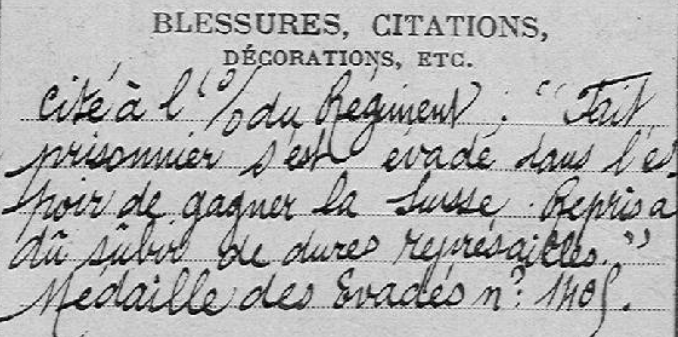 BLESSURES, CITATIONS,
DÉCORATIONS, ETC.
Cité à l'o/o du Régiment : "Fait
prisonnier s'est évadé dans l'es
poir de gagner la Suisse. Repris a
dû subir de dures représailles."
Médaille des Evadés n°